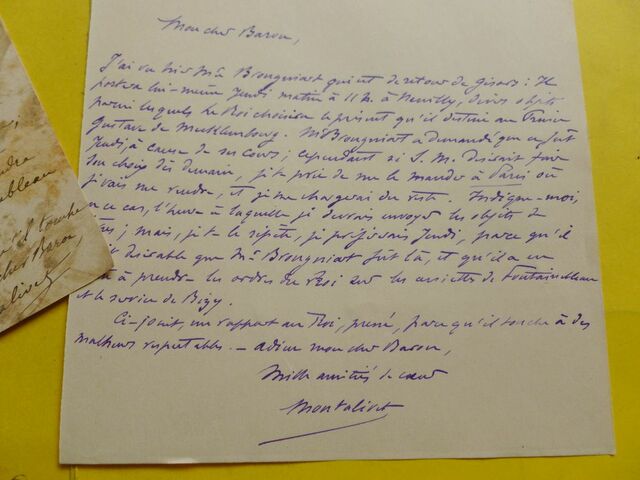 Mon cher Baron,
J'ai vu hier Mr Brongniart qui est de retour de Gisors : Il
portera lui-même Jeudi matin à 11 h. à Neuilly, divers objets
parmi lesquels le Roi choisira le présent qu'il destine au Prince
Gustave de Mecklembourg. Mr Brongniart a demandé que ce fût
Jeudi, à cause de ses cours ; cependant si S. M. désirait faire
son choix dès demain, je te prie de me le mander à Paris où
j'irais me rendre, et je me chargerai du reste. Indique-moi,
en ce cas, l'heure à laquelle je devrais envoyer les objets de
; mais, je te le répète, je préférerais Jeudi, parce qu'il
désirable que Mr Brongniart fût là, et qu'il a en
à prendre les ordres du Roi sur les assiettes de Fontainebleau
et le service de Bizy.
Ci-joint, un rapport au Roi, pressé, parce qu'il touche à des
malheurs respectables. — adieu mon cher Baron,
Mille amitiés de cœur
Montalivet
ableau
qu'il touche
cher Baron,